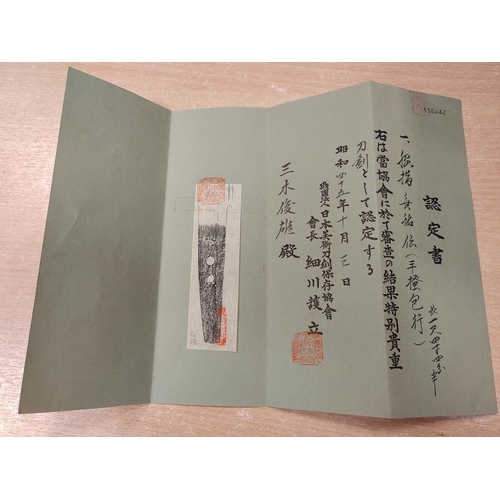 認定書
一、脇指 無銘 伝(手掻包行)
長一尺四寸四分半
右は當協會に於て審査の結果特別貴重
刀劍として認定する
昭和四十五年十月三日
財團法人日本美術刀劍保存協會
會長 細川護立
三木俊雄殿